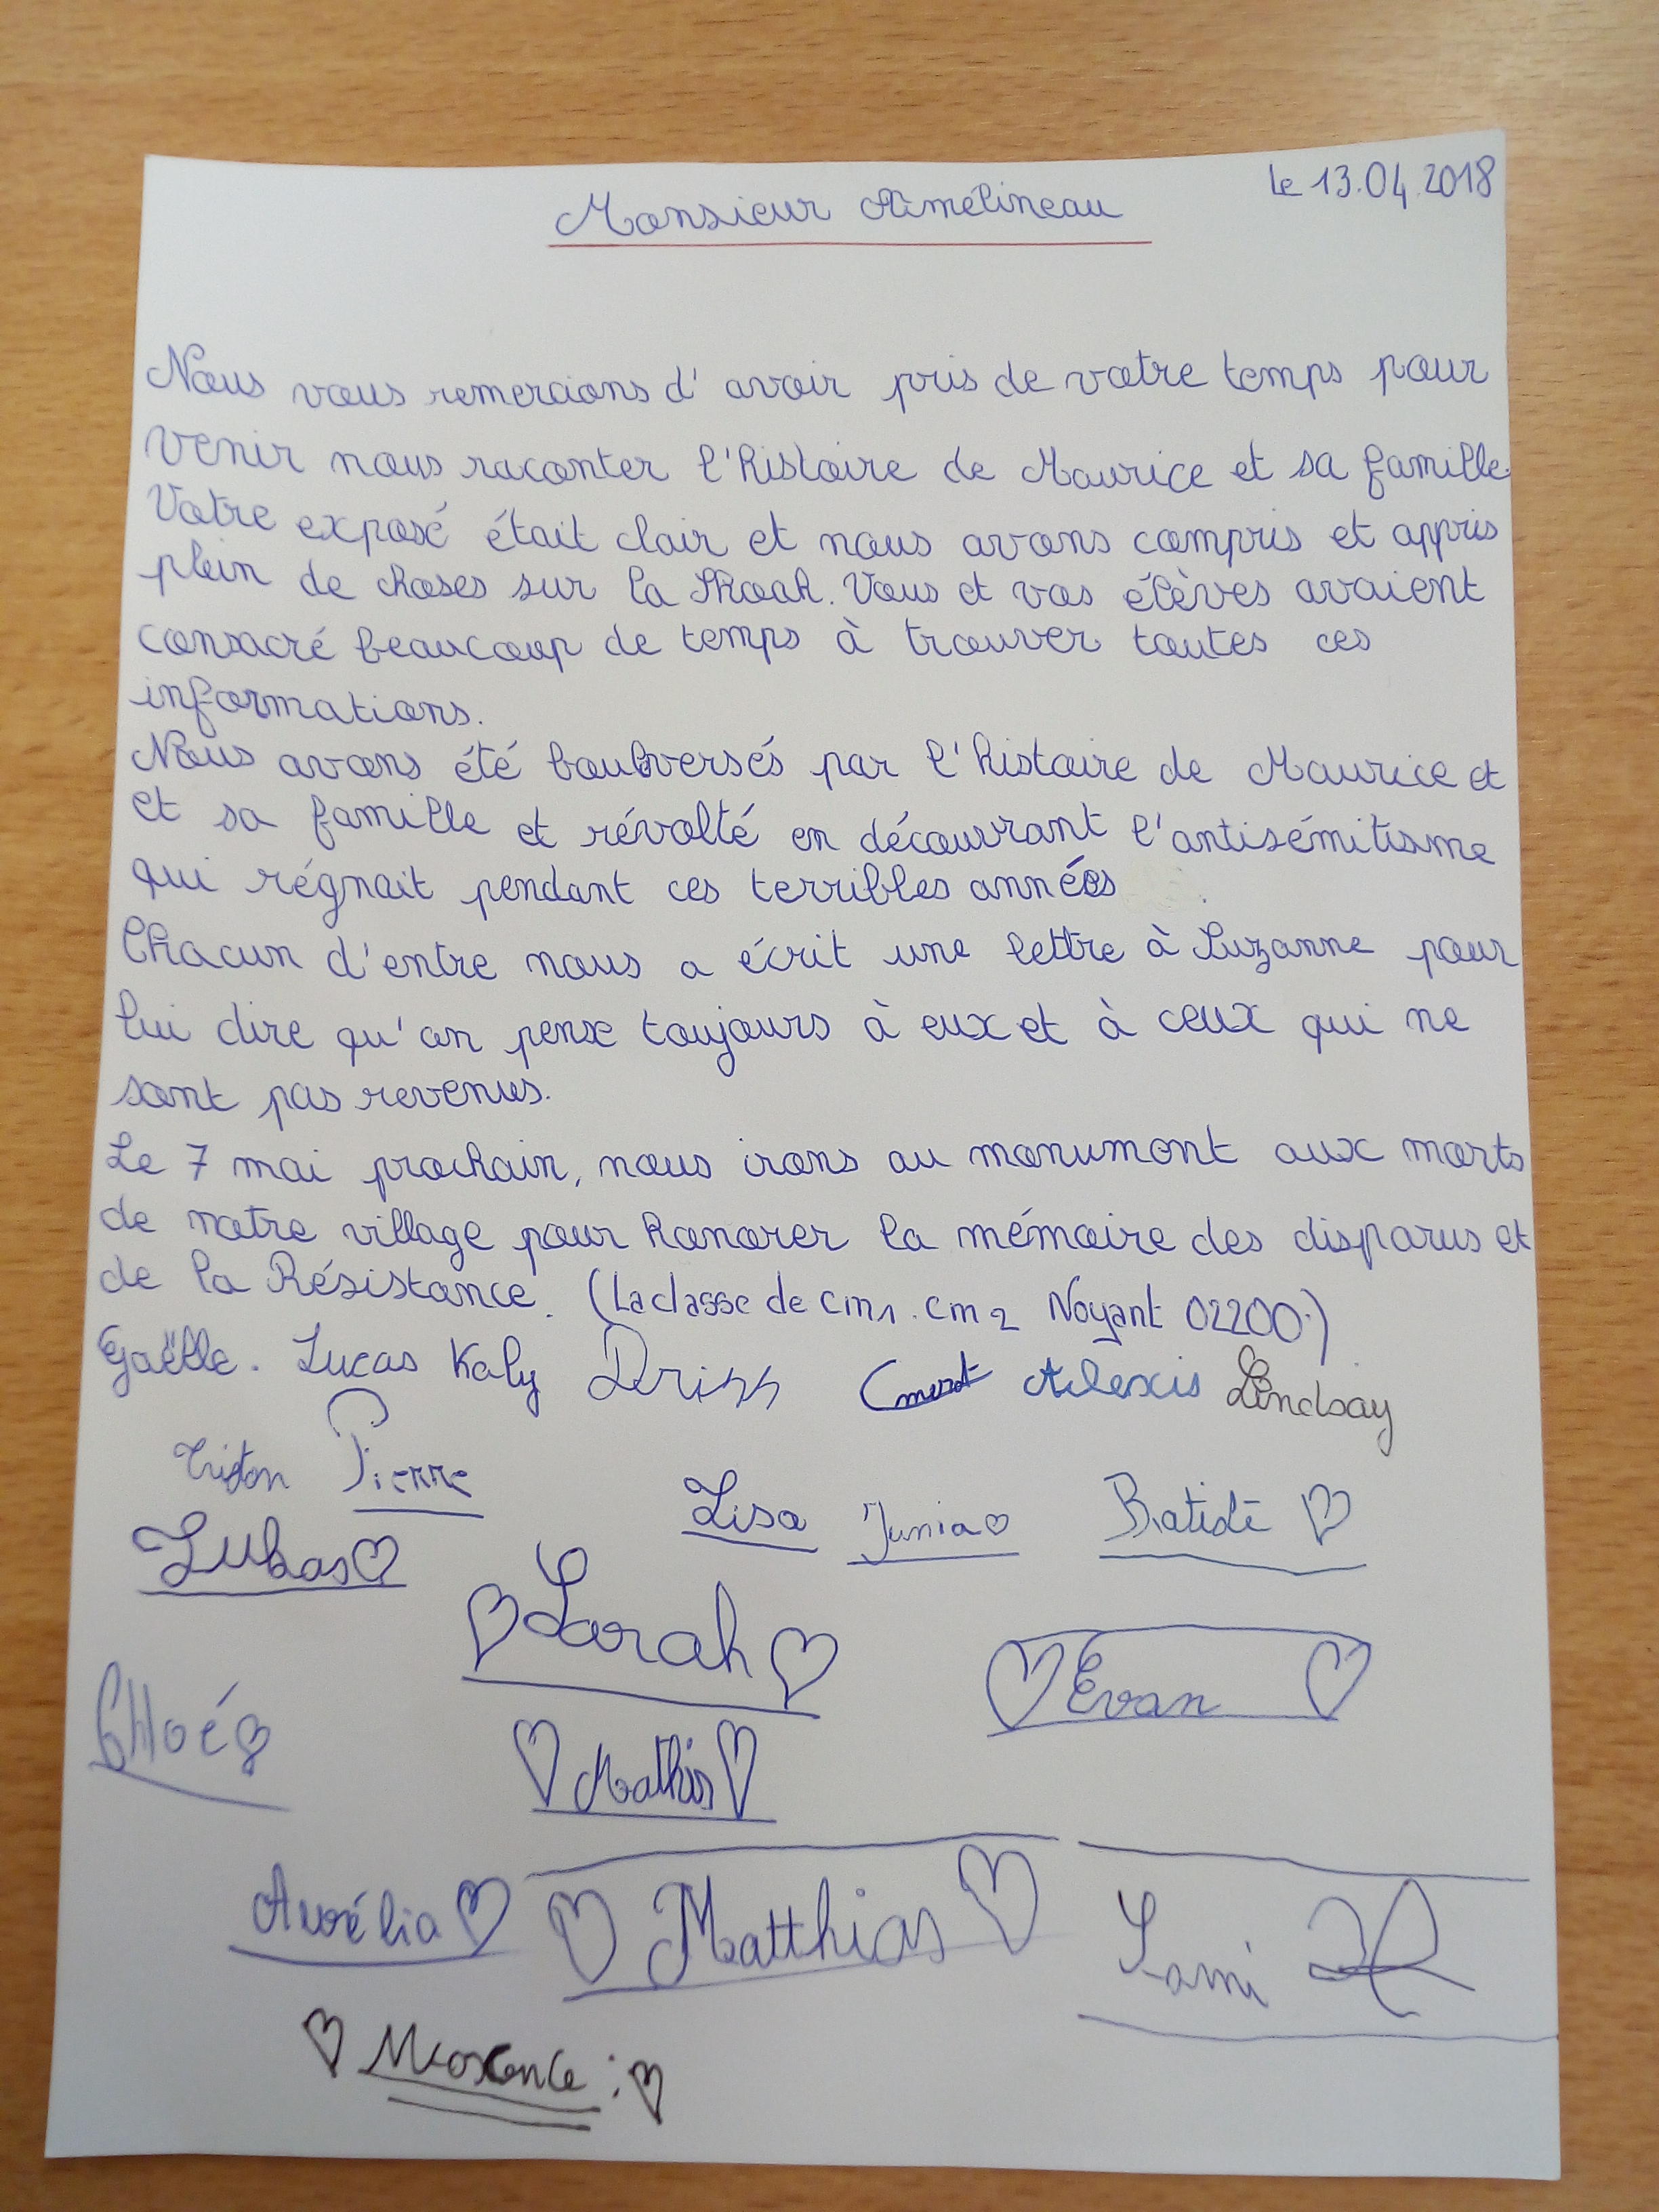 Le 13.04.2018
Monsieur Amélineau
Nous vous remercions d'avoir pris de votre temps pour
venir nous raconter l'histoire de Maurice et sa famille.
Votre exposé était clair et nous avons compris et appris
plein de choses sur la Shoah. Vous et vos élèves avaient
consacré beaucoup de temps à trouver toutes ces
informations.
Nous avons été bouleversés par l'histoire de Maurice et
et sa famille et révolté en découvrant l'antisémitisme
qui régnait pendant ces terribles années
Chacun d'entre nous a écrit une lettre à Suzanne pour
lui dire qu'on pense toujours à eux et à ceux qui ne
sont pas revenus.
Le 7 mai prochain, nous irons au monumont aux morts
de notre village pour honorer la mémoire des disparus et
de la Résistance. (La classe de cm1.cm2 Noyant 02200.)
Gaëlle. Lucas Kaly Driss Alexis Lindsay
Tristan Pierre
Lisa Junia Batiste
Lukas
Sarah
Evan
Chloé
Mathis
Aurélia Matthias Sami